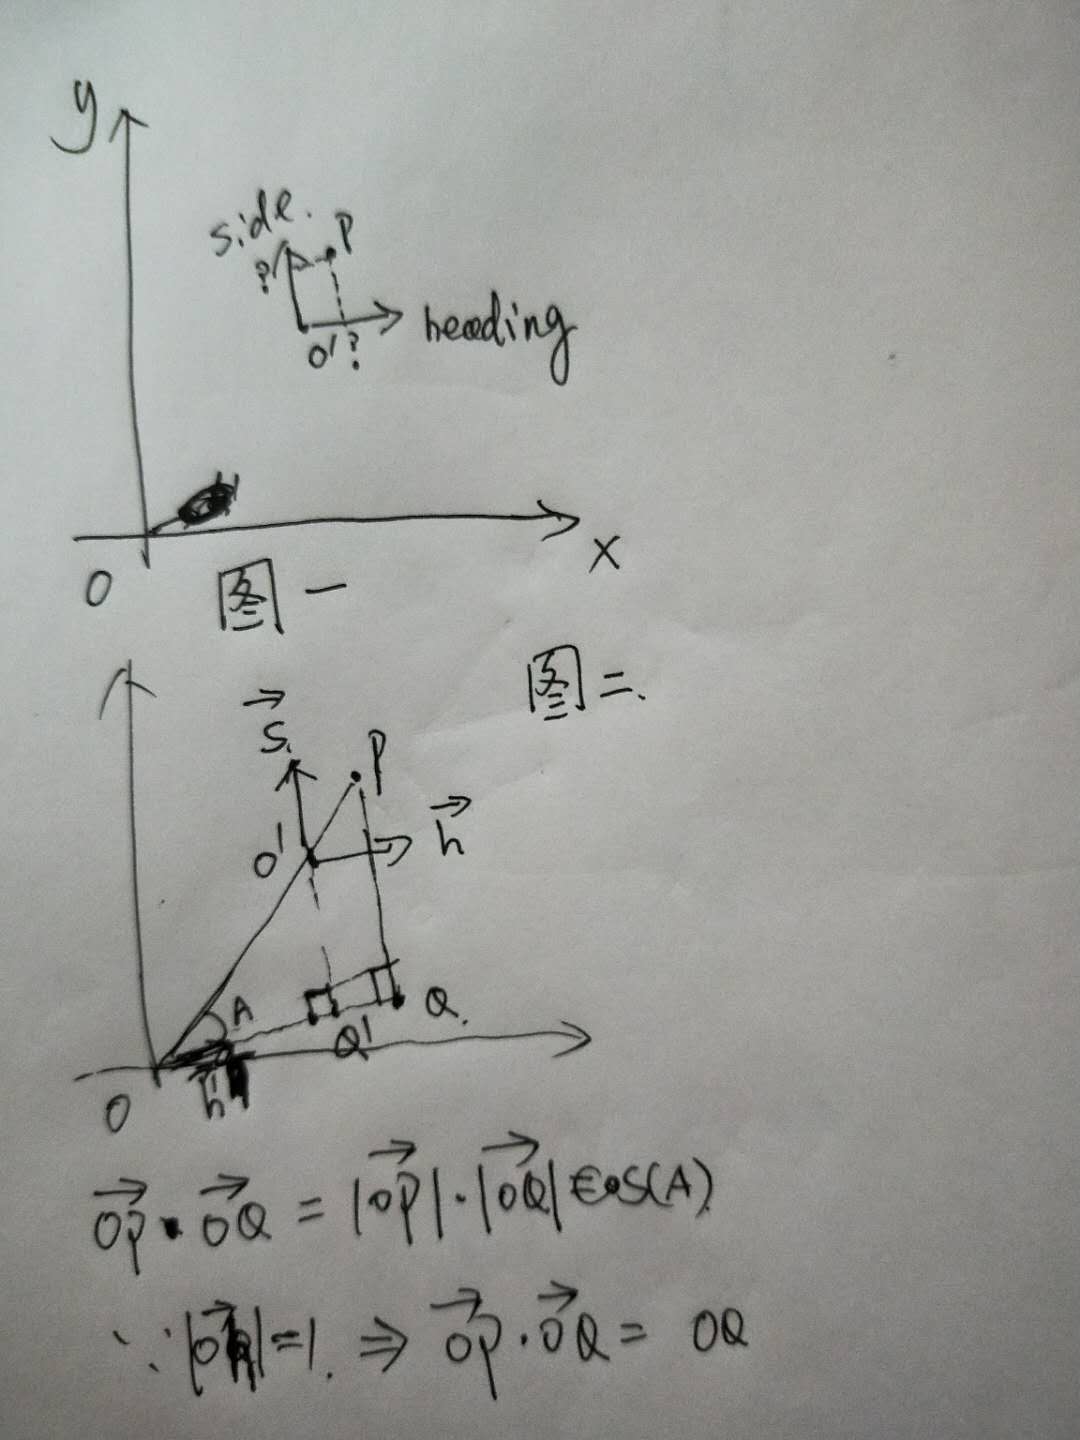 y
side.
P
?
O'?
heading
O
x
图一
图二.
S.
P
O'
h
A
Q'
Q.
h
O
OP · OQ = |OP| · |OQ| cos(A)
∵ |Oh| = 1. ⇒ OP · OQ = OQ